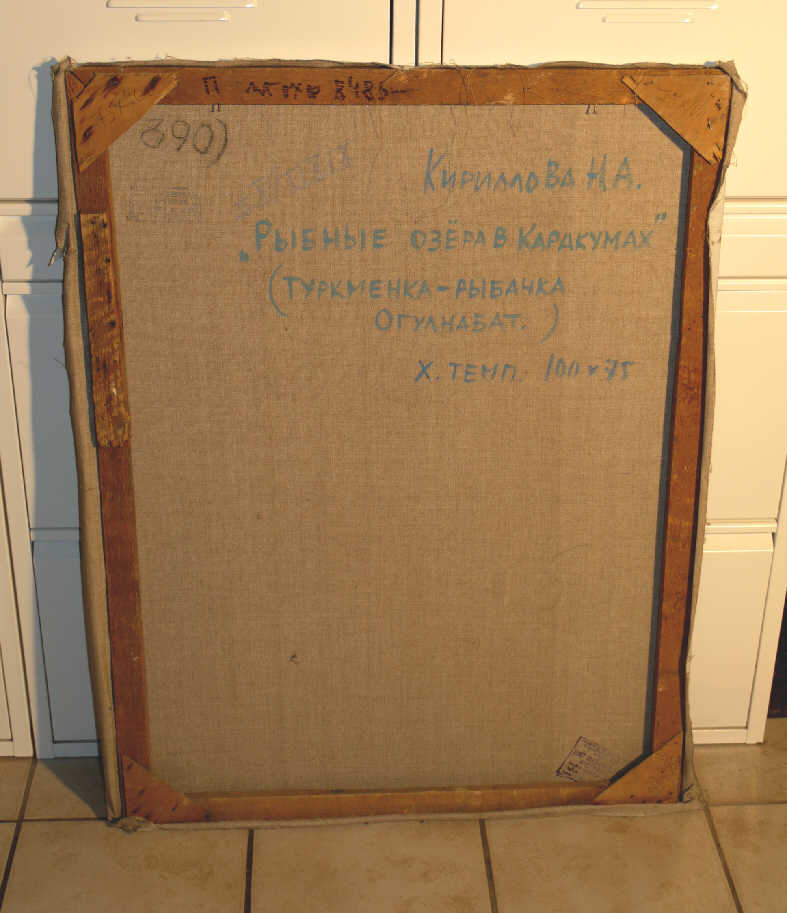 390)
Кириллова Н.А.
„Рыбные озёра в Каракумах"
(Туркменка-рыбачка
Огулнабат.)
Х. темп. 100 x 75